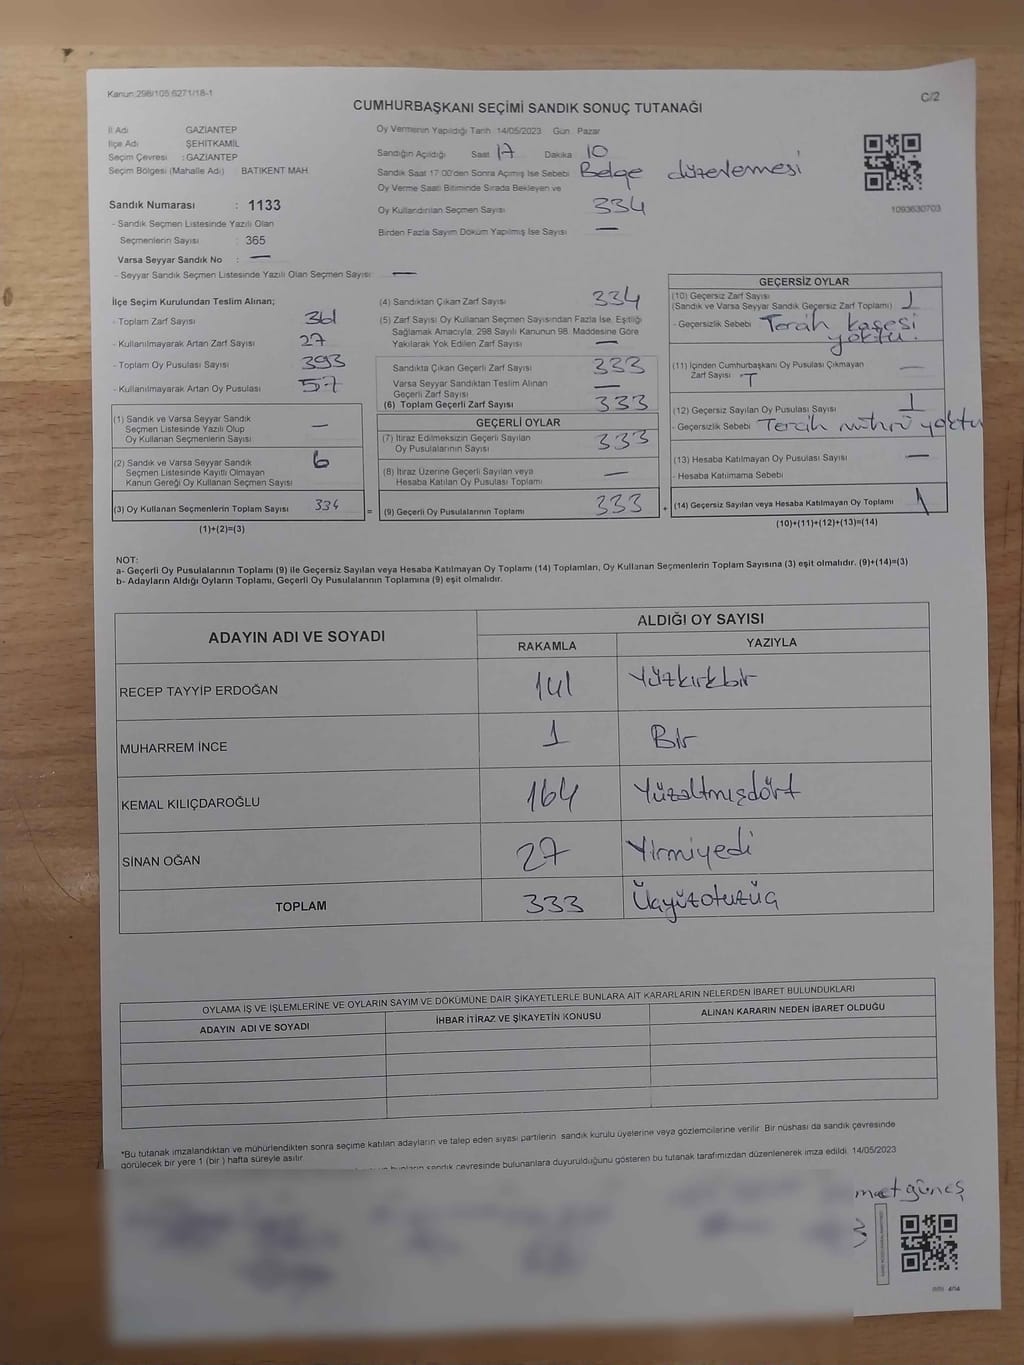 Kanun:298/105:6271/18-1
C/2
CUMHURBAŞKANI SEÇİMİ SANDIK SONUÇ TUTANAĞI
İl Adı GAZİANTEP
İlçe Adı ŞEHİTKAMİL
Seçim Çevresi : GAZİANTEP
Seçim Bölgesi (Mahalle Adı) BATIKENT MAH
Sandık Numarası : 1133
- Sandık Seçmen Listesinde Yazılı Olan
Seçmenlerin Sayısı : 365
Varsa Seyyar Sandık No : —
- Seyyar Sandık Seçmen Listesinde Yazılı Olan Seçmen Sayısı : —
Oy Vermenin Yapıldığı Tarih 14/05/2023 Gün Pazar
Sandığın Açıldığı Saat 17 Dakika 10
Sandık Saat 17.00'den Sonra Açımış İse Sebebi Belge düzenlemesi
Oy Verme Saati Bitiminde Sırada Bekleyen ve
Oy Kullandırılan Seçmen Sayısı 334
Birden Fazla Sayım Döküm Yapılmış İse Sayısı —
1093630703
İlçe Seçim Kurulundan Teslim Alınan;
- Toplam Zarf Sayısı 361
- Kullanılmayarak Artan Zarf Sayısı 27
- Toplam Oy Pusulası Sayısı 393
- Kullanılmayarak Artan Oy Pusulası 57
(1) Sandık ve Varsa Seyyar Sandık
Seçmen Listesinde Yazılı Olup
Oy Kullanan Seçmenlerin Sayısı —
(2) Sandık ve Varsa Seyyar Sandık
Seçmen Listesinde Kayıtlı Olmayan
Kanun Gereği Oy Kullanan Seçmen Sayısı 6
(3) Oy Kullanan Seçmenlerin Toplam Sayısı 334
(1)+(2)=(3)
=
(4) Sandıktan Çıkan Zarf Sayısı 334
(5) Zarf Sayısı Oy Kullanan Seçmen Sayısından Fazla İse, Eşitliği
Sağlamak Amacıyla; 298 Sayılı Kanunun 98. Maddesine Göre
Yakılarak Yok Edilen Zarf Sayısı —
Sandıkta Çıkan Geçerli Zarf Sayısı 333
Varsa Seyyar Sandıktan Teslim Alınan
Geçerli Zarf Sayısı —
(6) Toplam Geçerli Zarf Sayısı 333
GEÇERLİ OYLAR
(7) İtiraz Edilmeksizin Geçerli Sayılan
Oy Pusulalarının Sayısı 333
(8) İtiraz Üzerine Geçerli Sayılan veya
Hesaba Katılan Oy Pusulası Toplamı —
(9) Geçerli Oy Pusulalarının Toplamı 333
+
GEÇERSİZ OYLAR
(10) Geçersiz Zarf Sayısı
(Sandık ve Varsa Seyyar Sandık Geçersiz Zarf Toplamı) 1
- Geçersizlik Sebebi Tercih kaşesi
yoktu.
(11) İçinden Cumhurbaşkanı Oy Pusulası Çıkmayan
Zarf Sayısı —
(12) Geçersiz Sayılan Oy Pusulası Sayısı 1
- Geçersizlik Sebebi Tercih mührü yoktu
(13) Hesaba Katılmayan Oy Pusulası Sayısı —
- Hesaba Katılmama Sebebi
(14) Geçersiz Sayılan veya Hesaba Katılmayan Oy Toplamı 1
(10)+(11)+(12)+(13)=(14)
NOT:
a- Geçerli Oy Pusulalarının Toplamı (9) ile Geçersiz Sayılan veya Hesaba Katılmayan Oy Toplamı (14) Toplamları, Oy Kullanan Seçmenlerin Toplam Sayısına (3) eşit olmalıdır. (9)+(14)=(3)
b- Adayların Aldığı Oyların Toplamı, Geçerli Oy Pusulalarının Toplamına (9) eşit olmalıdır.
ADAYIN ADI VE SOYADI
ALDIĞI OY SAYISI
RAKAMLA YAZIYLA
RECEP TAYYİP ERDOĞAN 141 Yüzkırkbir
MUHARREM İNCE 1 Bir
KEMAL KILIÇDAROĞLU 164 Yüzaltmışdört
SİNAN OĞAN 27 Yirmiyedi
TOPLAM 333 Üçyüzotuzüç
OYLAMA İŞ VE İŞLEMLERİNE VE OYLARIN SAYIM VE DÖKÜMÜNE DAİR ŞİKAYETLERLE BUNLARA AİT KARARLARIN NELERDEN İBARET BULUNDUKLARI
ADAYIN ADI VE SOYADI İHBAR İTİRAZ VE ŞİKAYETİN KONUSU ALINAN KARARIN NEDEN İBARET OLDUĞU
*Bu tutanak imzalandıktan ve mühürlendikten sonra seçime katılan adayların ve talep eden siyasi partilerin sandık kurulu üyelerine veya gözlemcilerine verilir. Bir nüshası da sandık çevresinde
görülecek bir yere 1 (bir) hafta süreyle asılır.
bunların sandık çevresinde bulunanlara duyurulduğunu gösteren bu tutanak tarafımızdan düzenlenerek imza edildi. 14/05/2023
met güneş